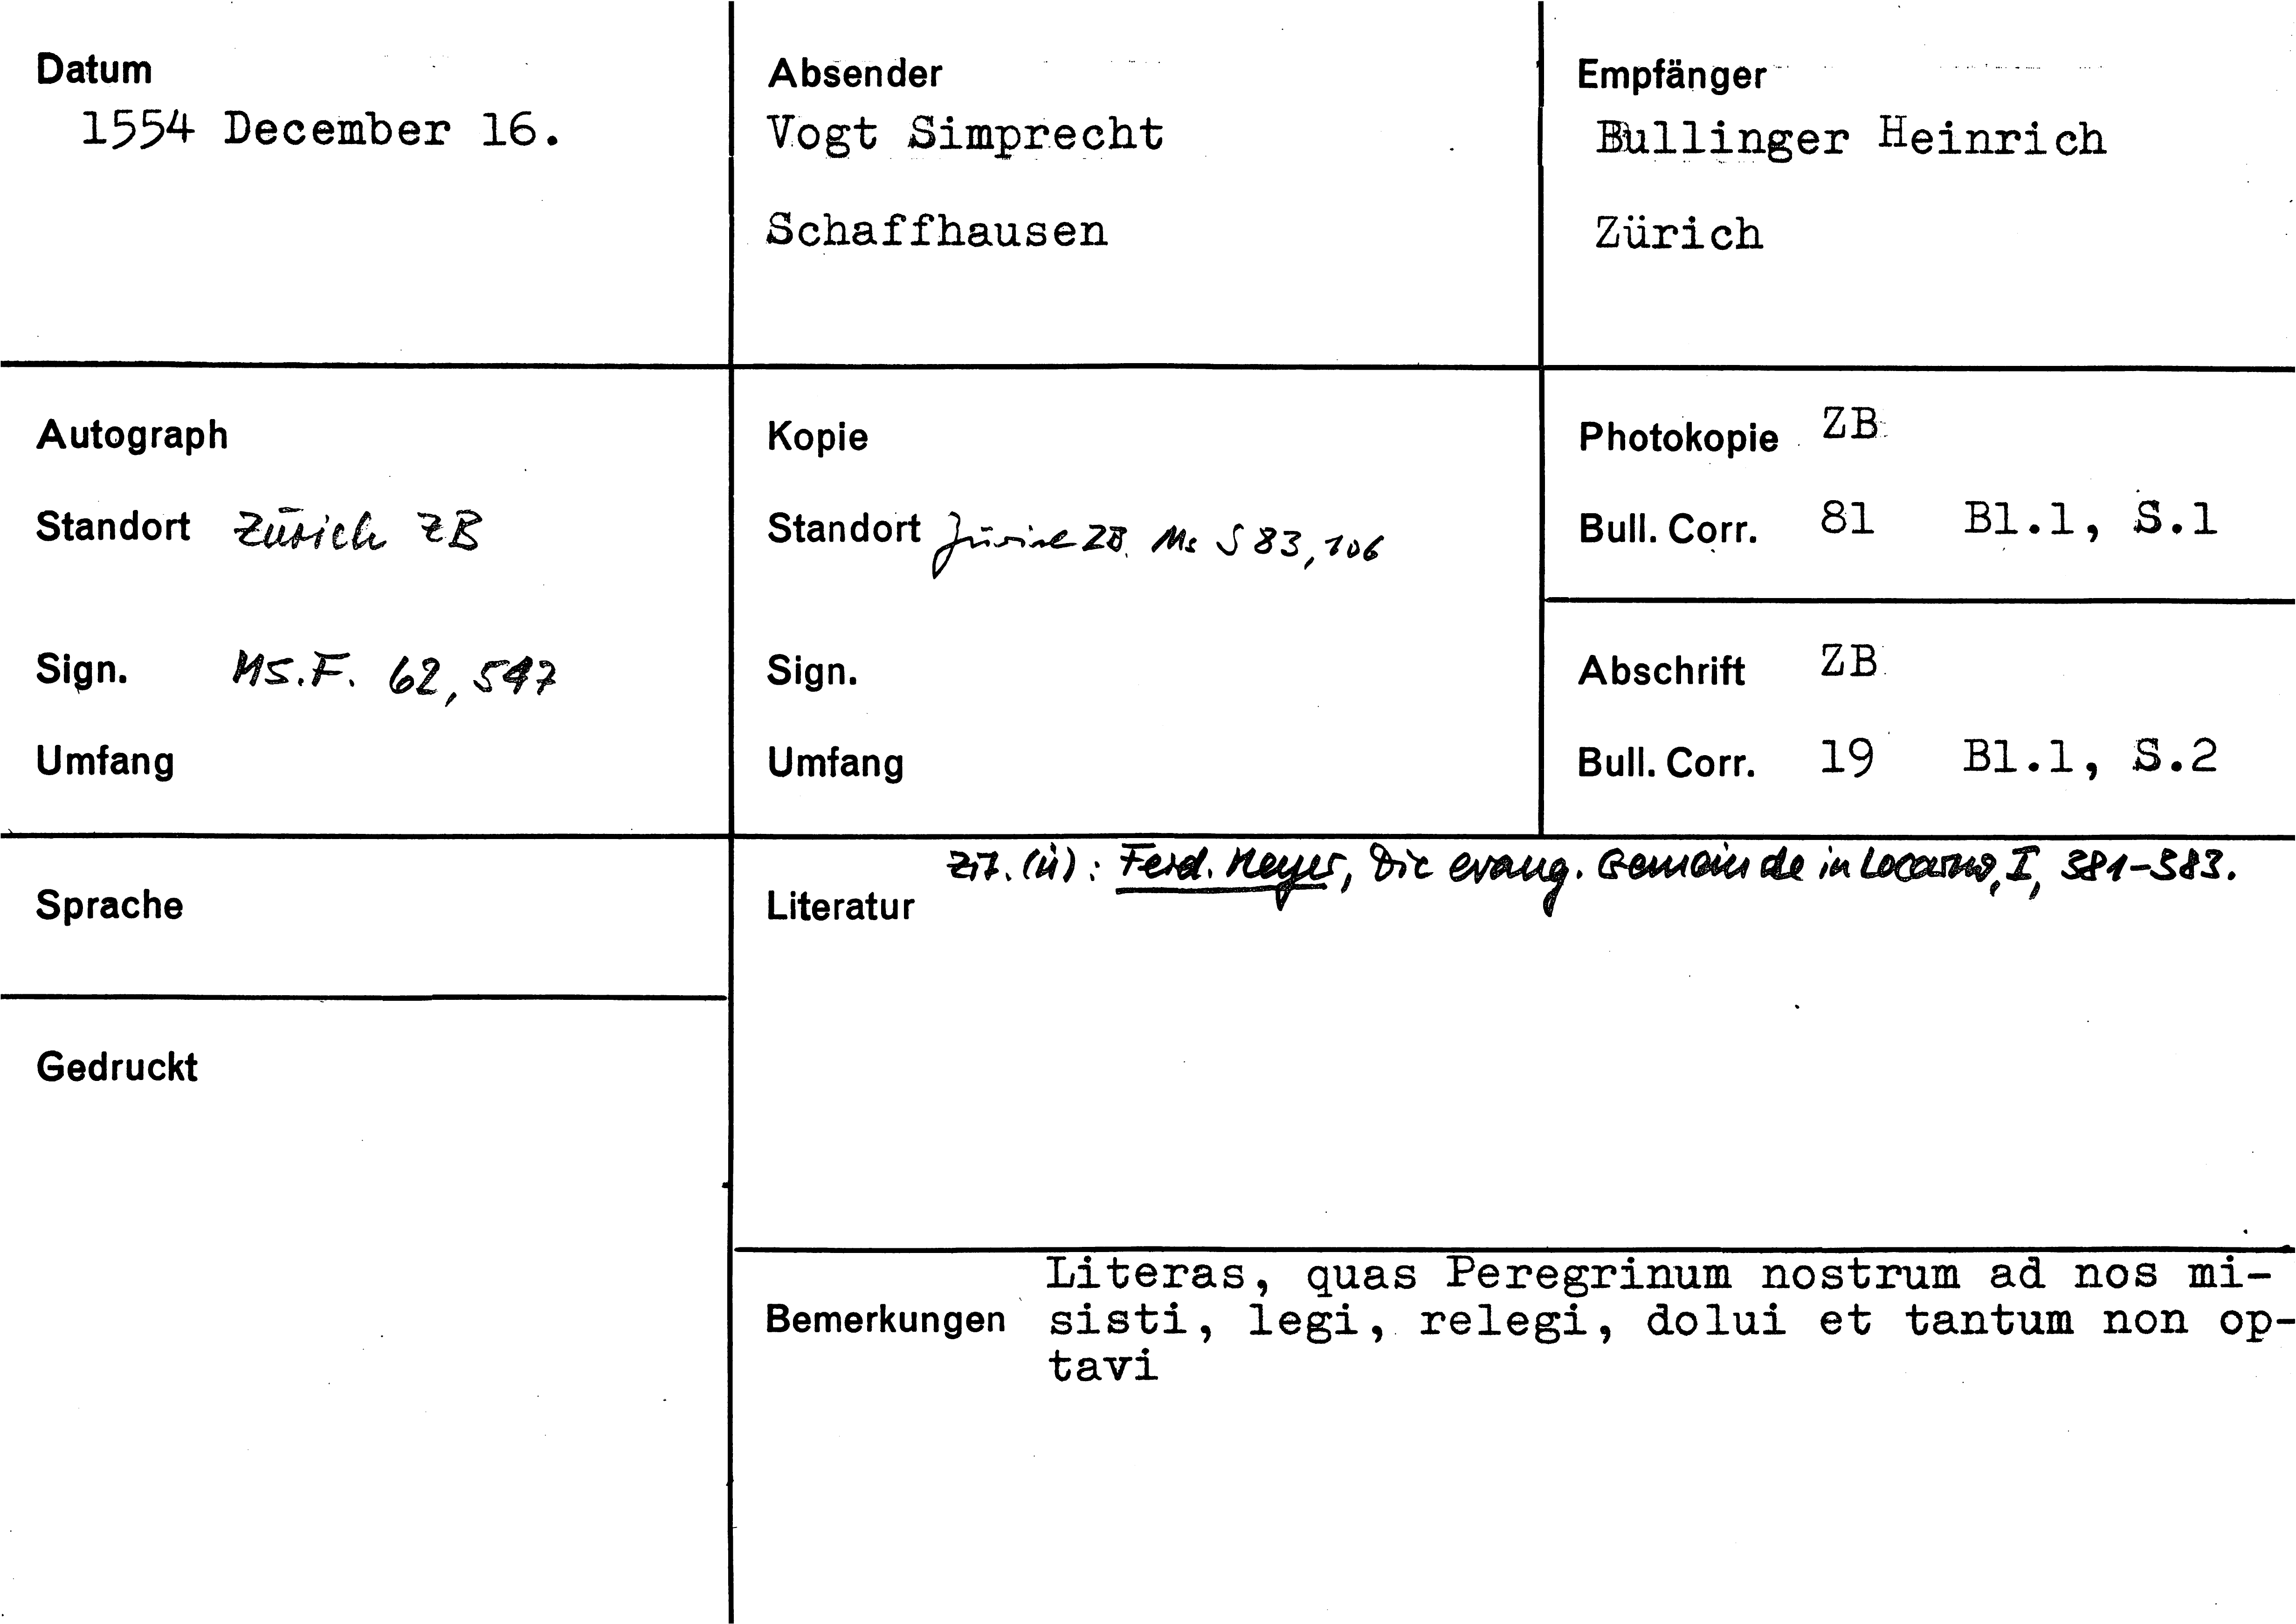 Datum
1554 December 16.
Absender
Vogt Simprecht
Schaffhausen
Empfänger
Bullinger Heinrich
Zürich
Autograph
Standort Zürich ZB
Sign. MS.F. 62, 547
Umfang
Kopie
Standort Zürich ZB. Ms S 83, 106
Sign.
Umfang
Photokopie ZB
Bull. Corr. 81 Bl.1, S.1
Abschrift ZB
Bull. Corr. 19 Bl.1, S.2
Sprache
Gedruckt
Zit. (ü): Ferd. Meyer, Die evang. Gemeinde in Locarno, I, 381-383.
Literatur
Literas, quas Peregrinum nostrum ad nos mi-
Bemerkungen sisti, legi, relegi, dolui et tantum non op-
tavi